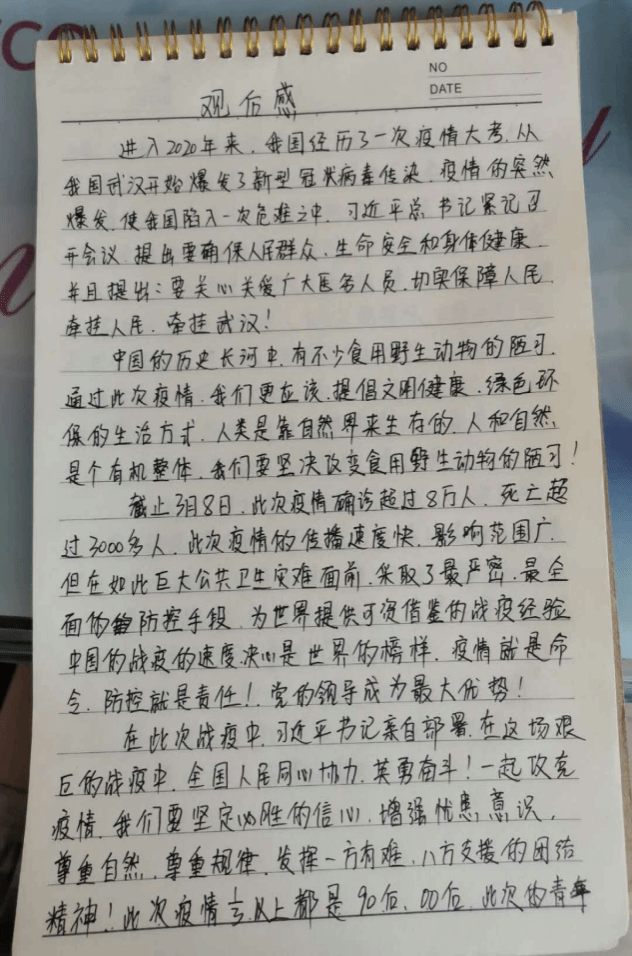 NO
DATE
观后感
进入2020年来，我国经历了一次疫情大考，从
我国武汉开始爆发了新型冠状病毒传染，疫情的突然
爆发，使我国陷入一次危难之中，习近平总书记紧记召
开会议，提出要确保人民群众，生命安全和身体健康，
并且提出：要关心关爱广大医务人员，切实保障人民，
牵挂人民，牵挂武汉！
中国的历史长河中，有不少食用野生动物的陋习，
通过此次疫情，我们更应该，提倡文明健康，绿色环
保的生活方式，人类是靠自然界来生存的，人和自然
是个有机整体，我们要坚决改变食用野生动物的陋习！
截止3月8日，此次疫情确诊超过8万人，死亡超
过3000多人，此次疫情的传播速度快，影响范围广，
但在如此巨大公共卫生灾难面前，采取了最严密，最全
面的防控手段，为世界提供可资借鉴的战疫经验
中国的战疫的速度，决心是世界的榜样，疫情就是命
令，防控就是责任！党的领导成为最大优势！
在此次战疫中，习近平书记亲自部署，在这场艰
巨的战疫中，全国人民同心协力，英勇奋斗！一起攻克
疫情，我们要坚定必胜的信心，增强忧患意识，
尊重自然，尊重规律，发挥一方有难，八方支援的团结
精神！此次疫情⅓以上都是90后、00后，此次的青年